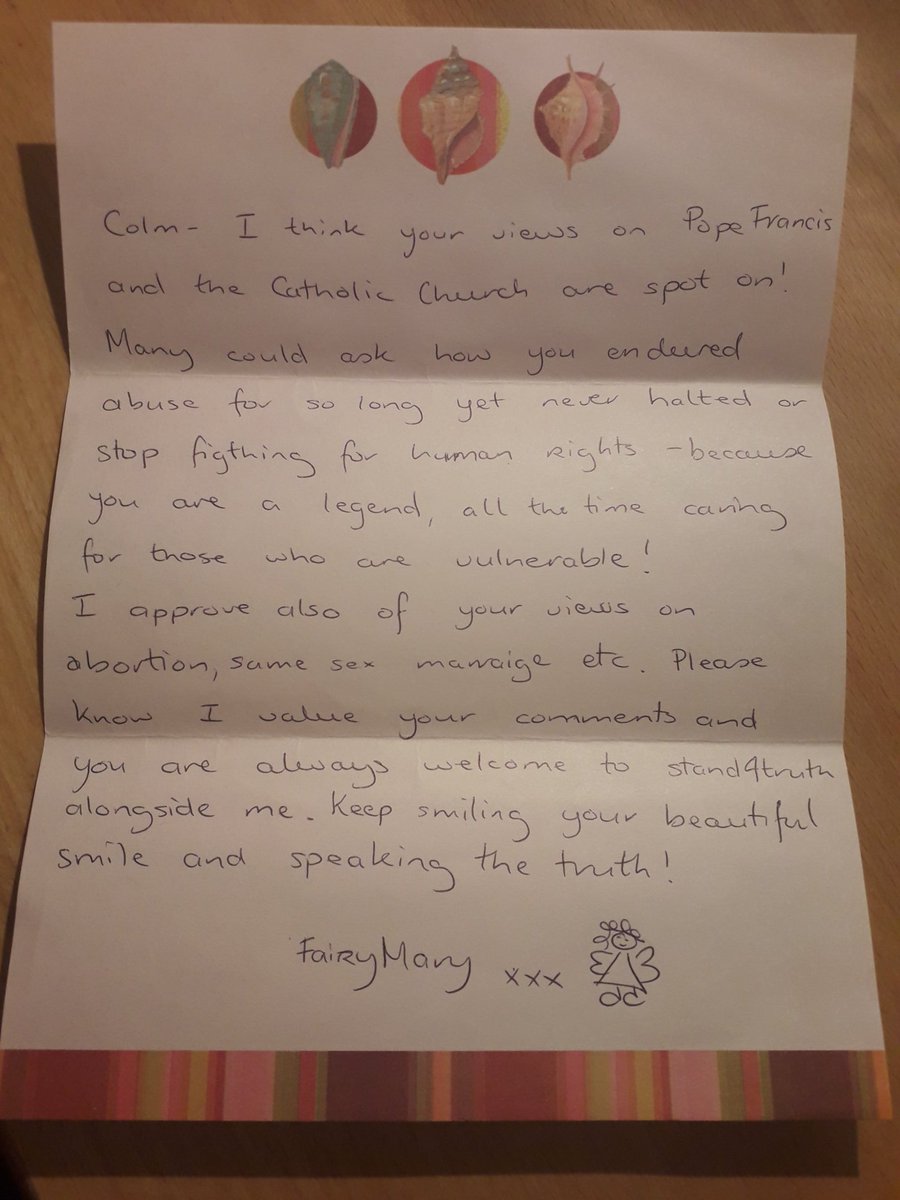 Colm - I think your views on Pope Francis
and the Catholic Church are spot on!
Many could ask how you endured
abuse for so long yet never halted or
stop figthing for human rights - because
you are a legend, all the time caring
for those who are vulnerable!
I approve also of your views on
abortion, same sex marraige etc. Please
know I value your comments and
you are always welcome to stand4truth
alongside me. Keep smiling your beautiful
smile and speaking the truth!
FairyMary xxx